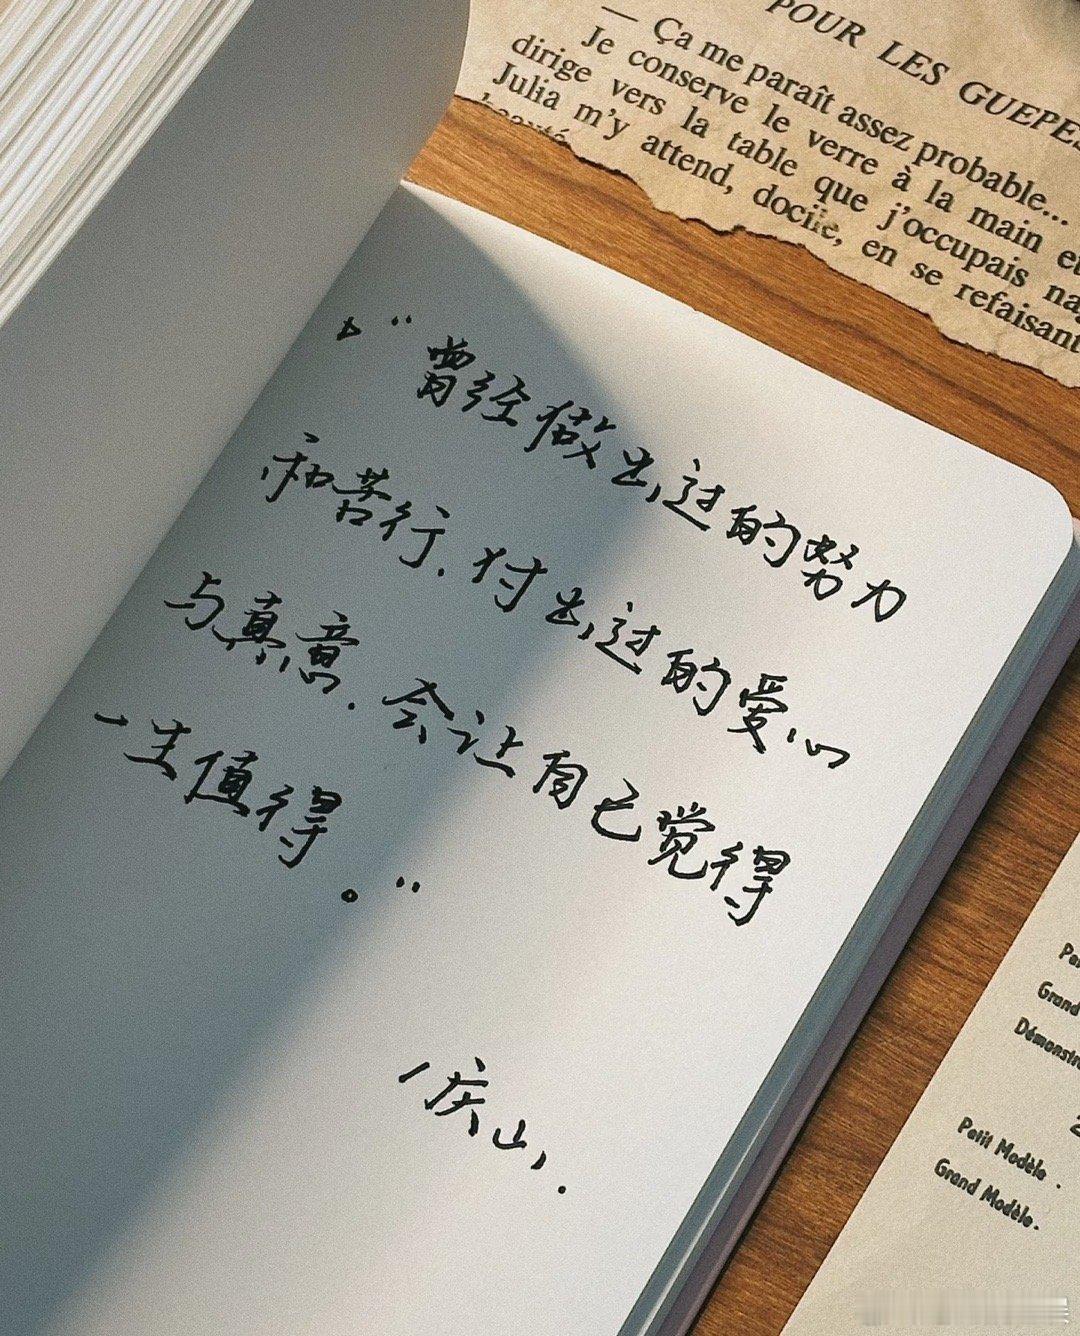 POUR LES GUEPES
— Ça me paraît assez probable...
Je conserve le verre à la main et
dirige vers la table que j'occupais na
Julia m'y attend, docile, en se refaisant
"曾经做出过的努力
和苦行.付出过的爱心
与真意.会让自己觉得
一生值得。"
/庆山.
Grand
Démonstra
Petit Modèle.
Grand Modèle.